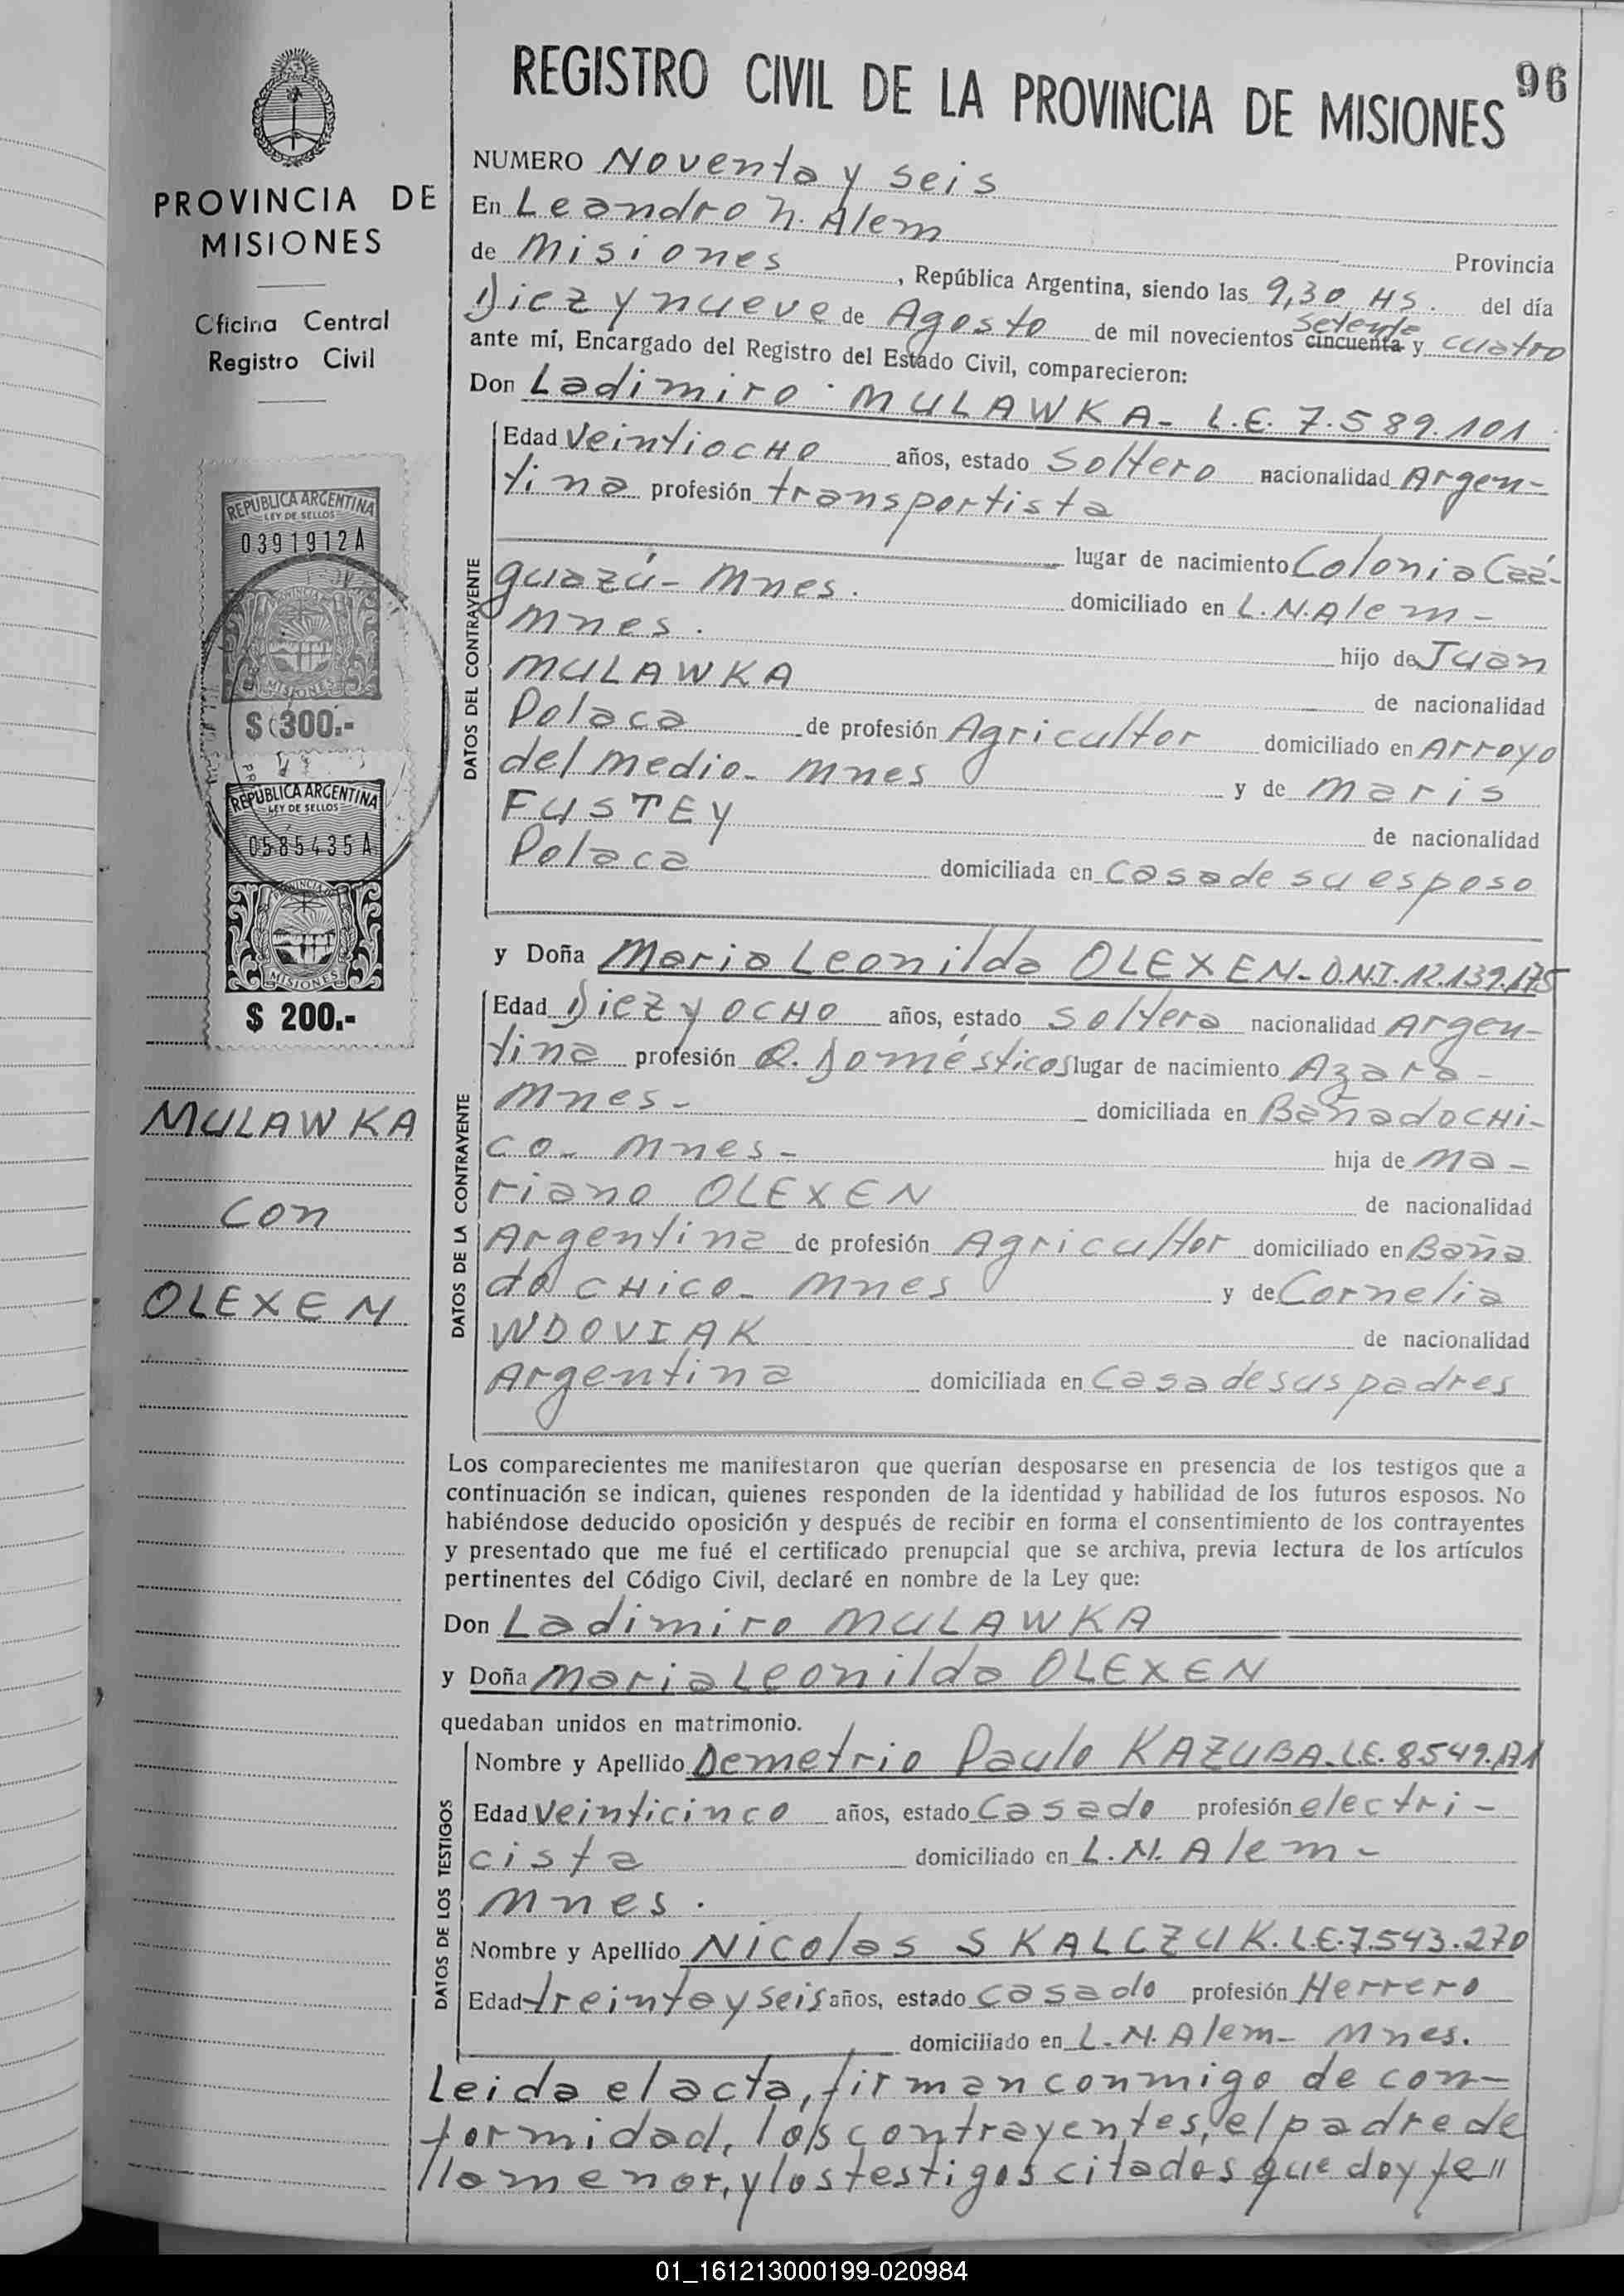 REGISTRO CIVIL DE LA PROVINCIA DE MISIONES 96
PROVINCIA DE
MISIONES
Oficina Central
Registro Civil
REPUBLICA ARGENTINA
LEY DE SELLOS
0391912A
MISIONES
$ 300.-
REPUBLICA ARGENTINA
LEY DE SELLOS
0585435A
PROVINCIA DE
MISIONES
$ 200.-
MULAWKA
con
OLEXEN
NUMERO Noventa y seis
En Leandro N. Alem Provincia
de Misiones, República Argentina, siendo las 9,30 HS. del día
Diez y nueve de Agosto de mil novecientos cincuenta setenta y cuatro
ante mí, Encargado del Registro del Estado Civil, comparecieron:
Don Ladimiro MULAWKA- L.E. 7.589.101
DATOS DEL CONTRAYENTE
Edad veintiocho años, estado soltero nacionalidad Argen-
tina profesión transportista
lugar de nacimiento Colonia Caá-
guazú- Mnes. domiciliado en L.N. Alem-
Mnes. hijo de Juan
MULAWKA de nacionalidad
Polaca de profesión Agricultor domiciliado en Arroyo
del medio- Mnes y de Maris
FUSTEY de nacionalidad
Polaca domiciliada en casa de su esposo
y Doña Maria Leonilda OLEXEN- D.N.I. 12.139.175
DATOS DE LA CONTRAYENTE
Edad Diez y ocho años, estado soltera nacionalidad Argen-
tina profesión Q. Domésticos lugar de nacimiento Azara-
Mnes- domiciliada en Bañado CHi-
co- Mnes- hija de Ma-
riano OLEXEN de nacionalidad
Argentina de profesión Agricultor domiciliado en Baña
do CHico- Mnes y de Cornelia
WDOVIAK de nacionalidad
Argentina domiciliada en casa de sus padres
Los comparecientes me manifestaron que querían desposarse en presencia de los testigos que a
continuación se indican, quienes responden de la identidad y habilidad de los futuros esposos. No
habiéndose deducido oposición y después de recibir en forma el consentimiento de los contrayentes
y presentado que me fué el certificado prenupcial que se archiva, previa lectura de los artículos
pertinentes del Código Civil, declaré en nombre de la Ley que:
Don Ladimiro MULAWKA
y Doña Maria Leonilda OLEXEN
quedaban unidos en matrimonio.
DATOS DE LOS TESTIGOS
Nombre y Apellido Demetrio Paulo KAZUBA- L.E. 8.549.171
Edad veinticinco años, estado casado profesión electri-
cista domiciliado en L.N. Alem-
Mnes.
Nombre y Apellido Nicolas SKALCZUK. L.E. 7.543.270
Edad treinta y seis años, estado casado profesión Herrero
domiciliado en L.N. Alem- Mnes.
Leida el acta, firman conmigo de con-
formidad, los contrayentes, el padre de
la menor, y los testigos citados que doy fe"
01_161213000199-020984